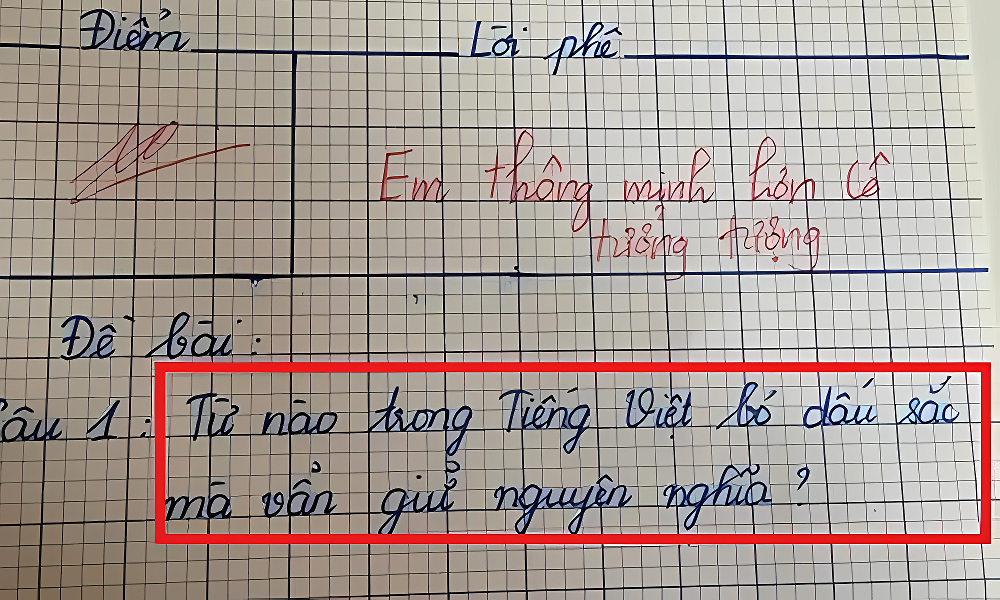 Điểm
Lời phê
Em thông minh hơn cô
tưởng tượng
Đề bài:
Câu 1: Từ nào trong Tiếng Việt bỏ dấu sắc
mà vẩn giử nguyên nghĩa?